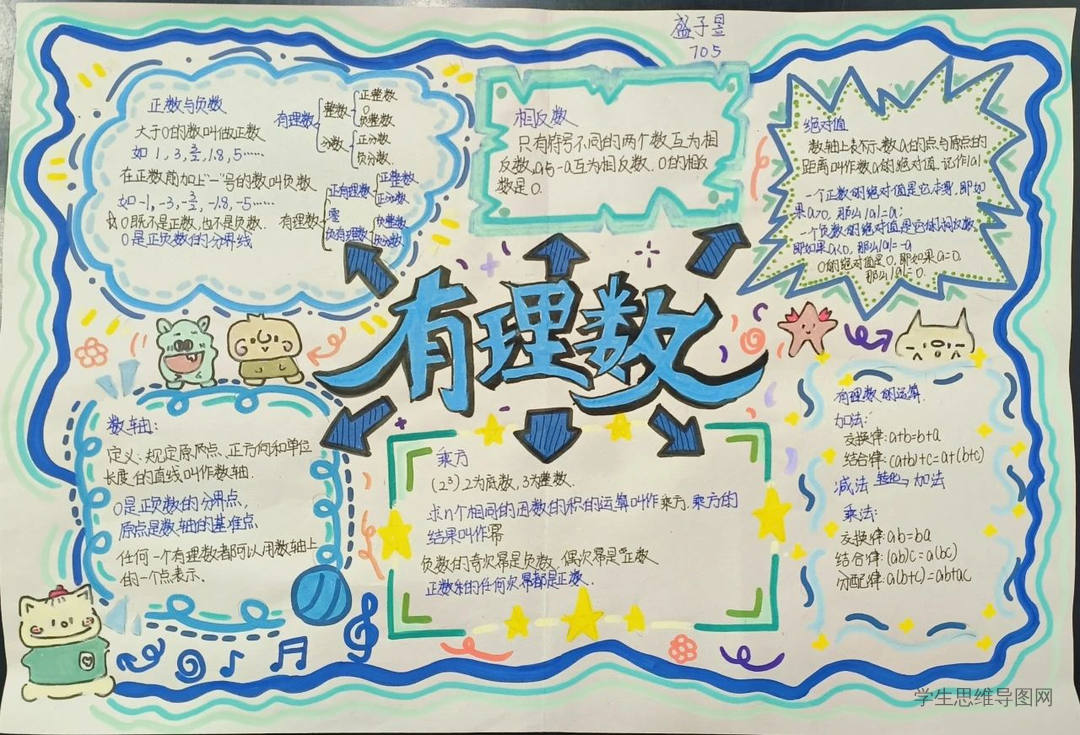 盛子昱
705
正数与负数
大于0的数叫做正数
如 1, 3, 3/2, 1.8, 5……
在正数前加上“-”号的数叫负数
如 -1, -3, -3/2, -1.8, -5……
0既不是正数,也不是负数.
0是正负数的分界线
有理数 整数 正整数
0
负整数
分数 正分数
负分数.
有理数 正有理数 正整数
正分数
零
负有理数 负整数
负分数
相反数
只有符号不同的两个数互为相
反数,a与-a互为相反数. 0的相反
数是0.
绝对值
数轴上表示数a的点与原点的
距离叫作数a的绝对值.记作|a|
一个正数的绝对值是它本身,即如
果a>0, 那么|a|=a;
一个负数的绝对值是它的相反数,
即如果a<0, 那么|a|=-a
0的绝对值是0,即如果a=0,
那么|a|=0.
有理数
数轴:
定义:规定原点、正方向和单位
长度的直线叫作数轴.
0是正负数的分界点,
原点是数轴的基准点
任何一个有理数都可以用数轴上
的一个点表示.
乘方
(2³) 2为底数, 3为整数.
求n个相同的因数的积的运算叫作乘方,乘方的
结果叫作幂
负数的奇次幂是负数 偶次幂是正数
正数和的任何次幂都是正数.
有理数的运算.
加法:
交换律: a+b=b+a
结合律: (a+b)+c=a+(b+c)
减法 转化 加法
乘法:
交换律 ab=ba
结合律: (ab)c=a(bc)
分配律: a(b+c)=ab+ac
学生思维导图网